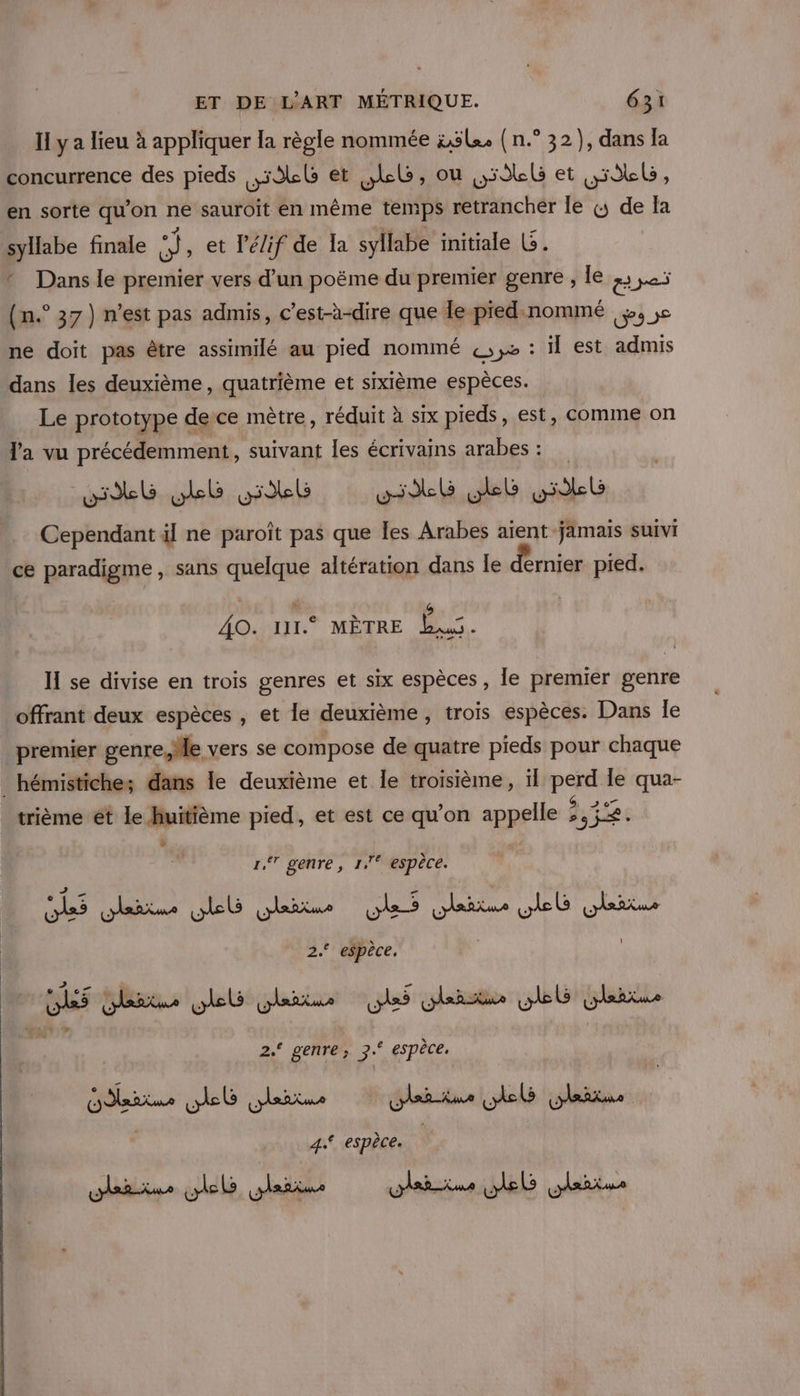 ET DE L'ART MÉTRIQUE. 631
Il y a lieu à appliquer la règle nommée معاقبة (n.° 32), dans la
concurrence des pieds فاعلاتن et فاعلن, ou فاعلاتن et فاعلاتن,
en sorte qu'on ne sauroit en même temps retrancher le ن de la
syllabe finale تن, et l'élif de la syllabe initiale فا.
Dans le premier vers d'un poëme du premier genre, le تصريع
(n.° 37) n'est pas admis, c'est-à-dire que le pied nommé عروض
ne doit pas être assimilé au pied nommé ضرب : il est admis
dans les deuxième, quatrième et sixième espèces.
Le prototype de ce mètre, réduit à six pieds, est, comme on
l'a vu précédemment, suivant les écrivains arabes :
فاعلاتن فاعلن فاعلاتن فاعلاتن فاعلن فاعلاتن
Cependant il ne paroît pas que les Arabes aient jamais suivi
ce paradigme, sans quelque altération dans le dernier pied.
40. III.e MÈTRE بسيط.
Il se divise en trois genres et six espèces, le premier genre
offrant deux espèces, et le deuxième, trois espèces. Dans le
premier genre, le vers se compose de quatre pieds pour chaque
hémistiche; dans le deuxième et le troisième, il perd le qua-
trième et le huitième pied, et est ce qu'on appelle مجزوء.
1.er genre, 1.re espèce.
مستفعلن فاعلن مستفعلن فعلن مستفعلن فاعلن مستفعلن فَعِلُنْ
2.e espèce.
مستفعلن فاعلن مستفعلن فعلن مستفعلن فاعلن مستفعلن فَعْلُنْ
2.e genre; 3.e espèce.
مستفعلن فاعلن مستفعلن مستفعلن فاعلن مستفعلانْ
4.e espèce.
مستفعلن فاعلن مستفعلن مستفعلن فاعلن مستفعلن